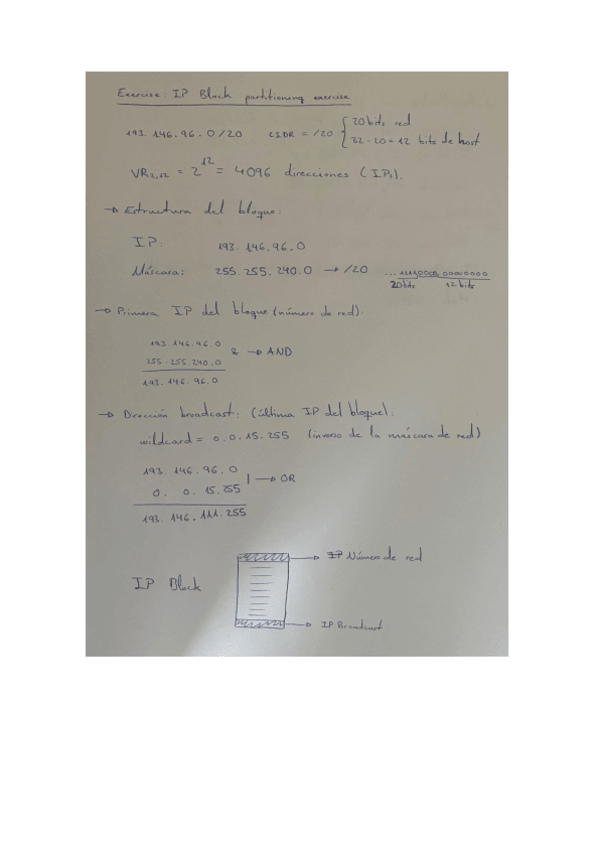 Exercise: IP Block partitioning exercise
193.146.96.0/20 CIDR = /20 { 20 bits red
32-20 = 12 bits de host
VR2,12 = 2^12 = 4096 direcciones (IPs).
→ Estructura del bloque:
IP: 193.146.96.0
Máscara: 255.255.240.0 → /20 ...11110000.00000000
20 bits 12 bits
→ Primera IP del bloque (número de red):
193.146.96.0
255.255.240.0 & → AND
193.146.96.0
→ Dirección broadcast: (última IP del bloque):
wildcard = 0.0.15.255 (inverso de la máscara de red)
193.146.96.0
0. 0. 15.255 | → OR
193.146.111.255
IP Block
→ IP Número de red
→ IP Broadcast